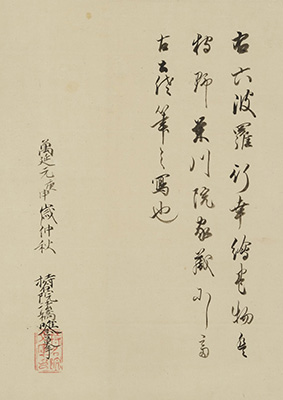 右六波羅行幸繪巻物者
狩野榮川院家蔵
古土佐筆之寫也
萬延元庚申歳仲秋